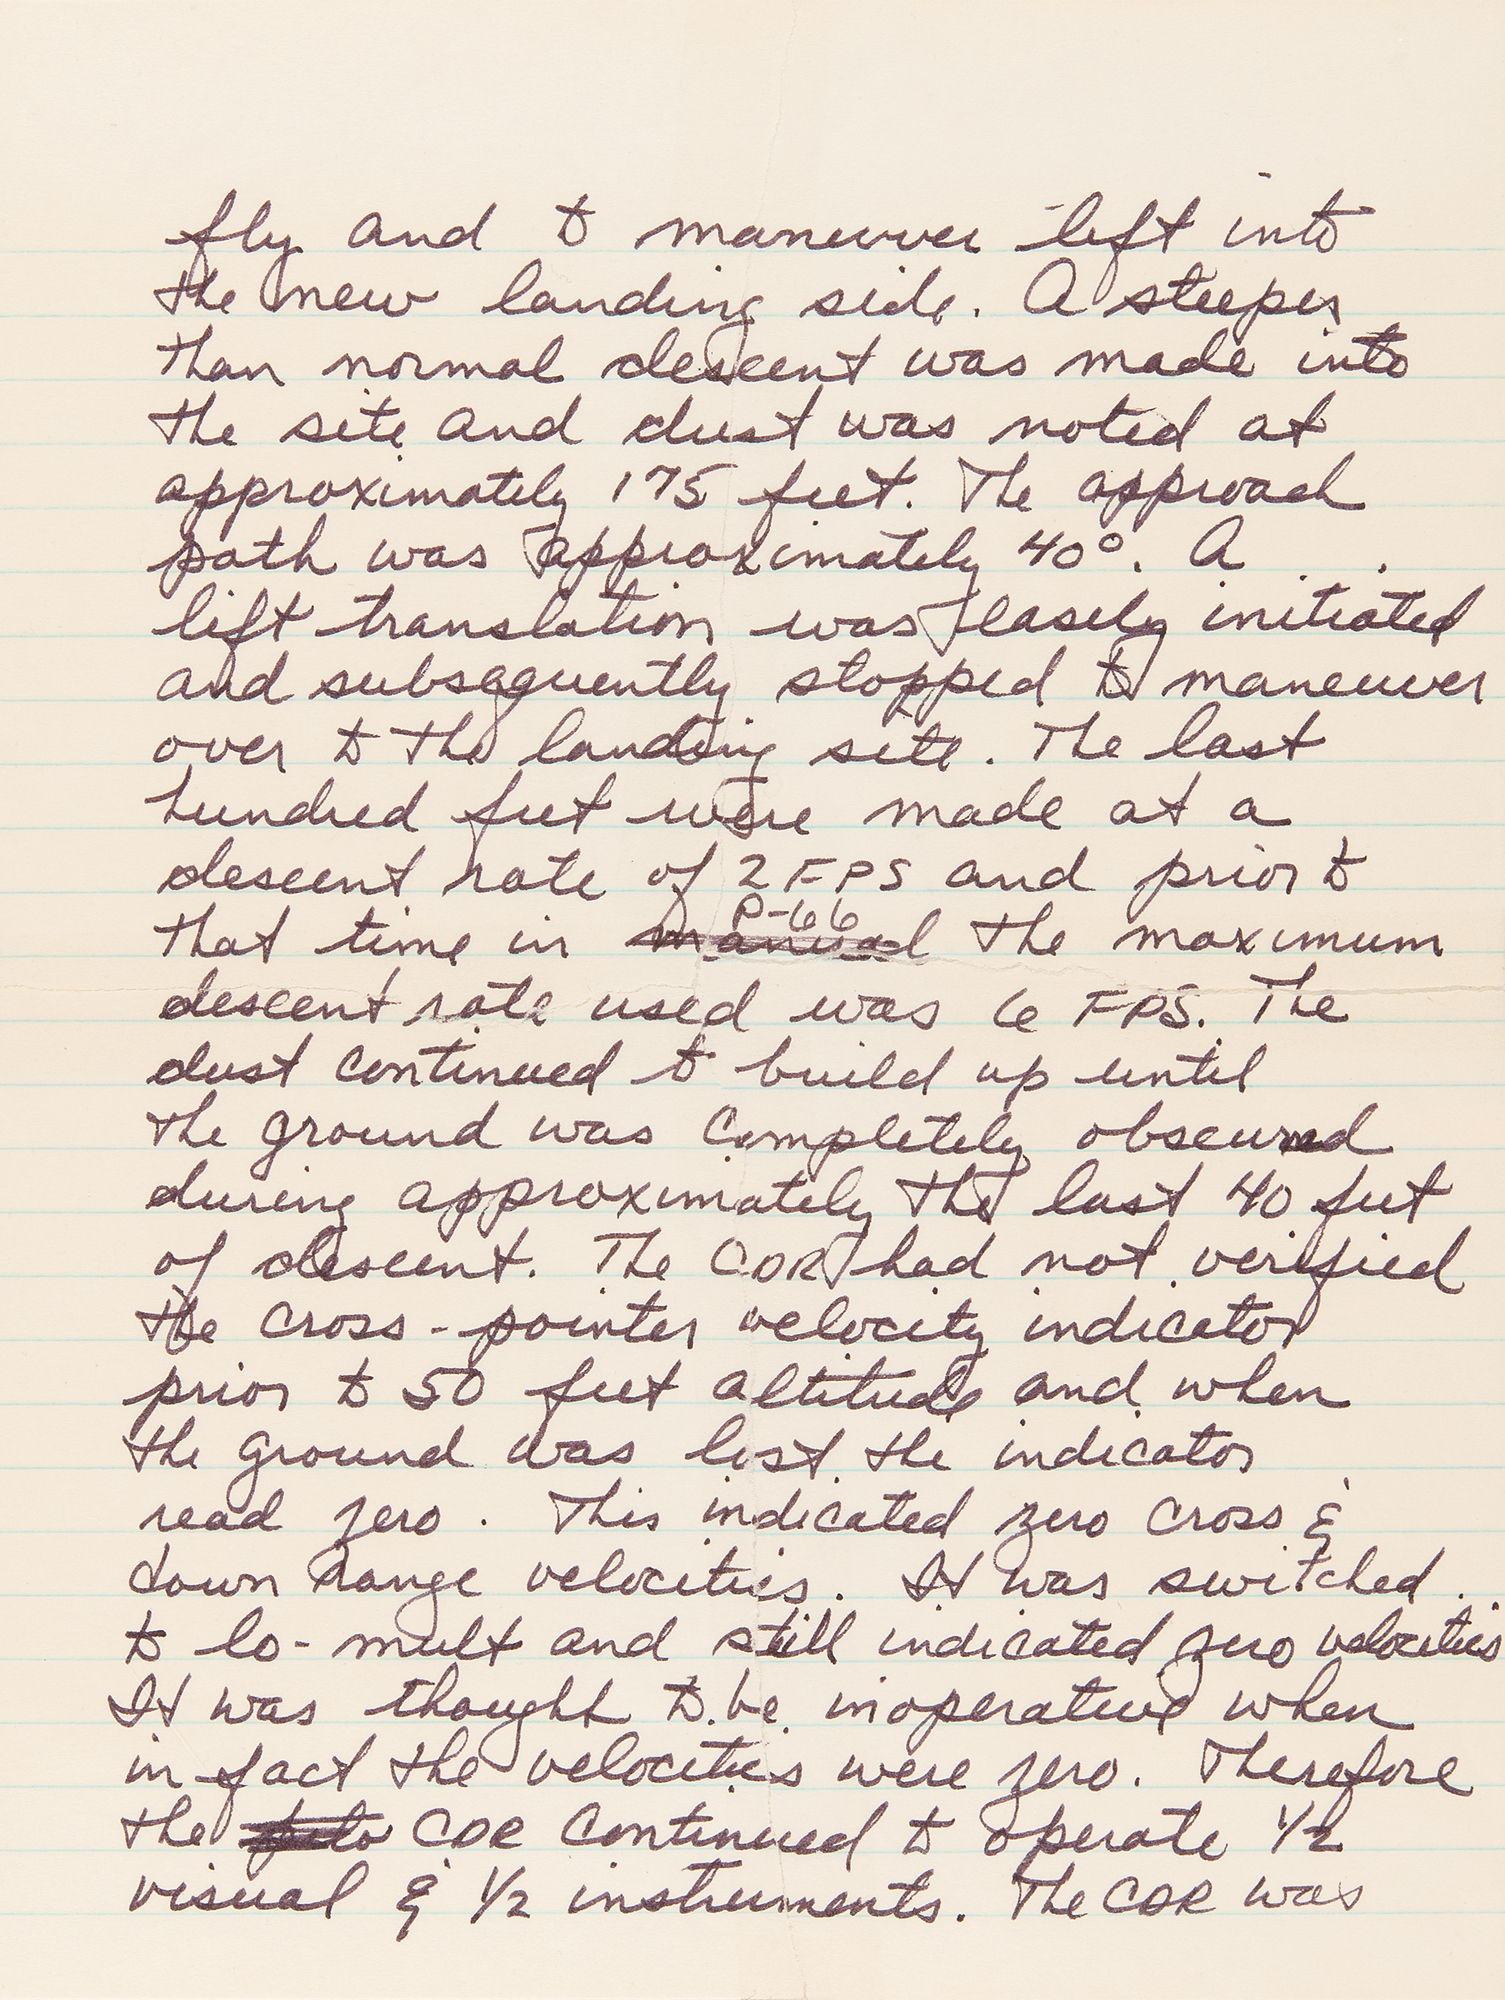 fly and to maneuver left into
the new landing side. A steeper
than normal descent was made into
the site and dust was noted at
approximately 175 feet. The approach
path was approximately 40°. A
left translation was easely initiated
and subsequently stopped to maneuver
over to the landing site. The last
hundred feet were made at a
descent rate of 2 FPS and prior to
P-66
that time in manual the maximum
descent rate used was 6 FPS. The
dust continued to build up until
the ground was completely obscured
during approximately the last 40 feet
of descent. The CDR had not verified
the cross-pointer velocity indicator
prior to 50 feet altitude and when
the ground was lost the indicator
read zero. This indicated zero cross &
down range velocities. It was switched
to lo-mult and still indicated zero velocities
It was thought to be inoperative when
in fact the velocities were zero. Therefore
the CDR continued to operate 1/2
visual & 1/2 instruments. The CDR was